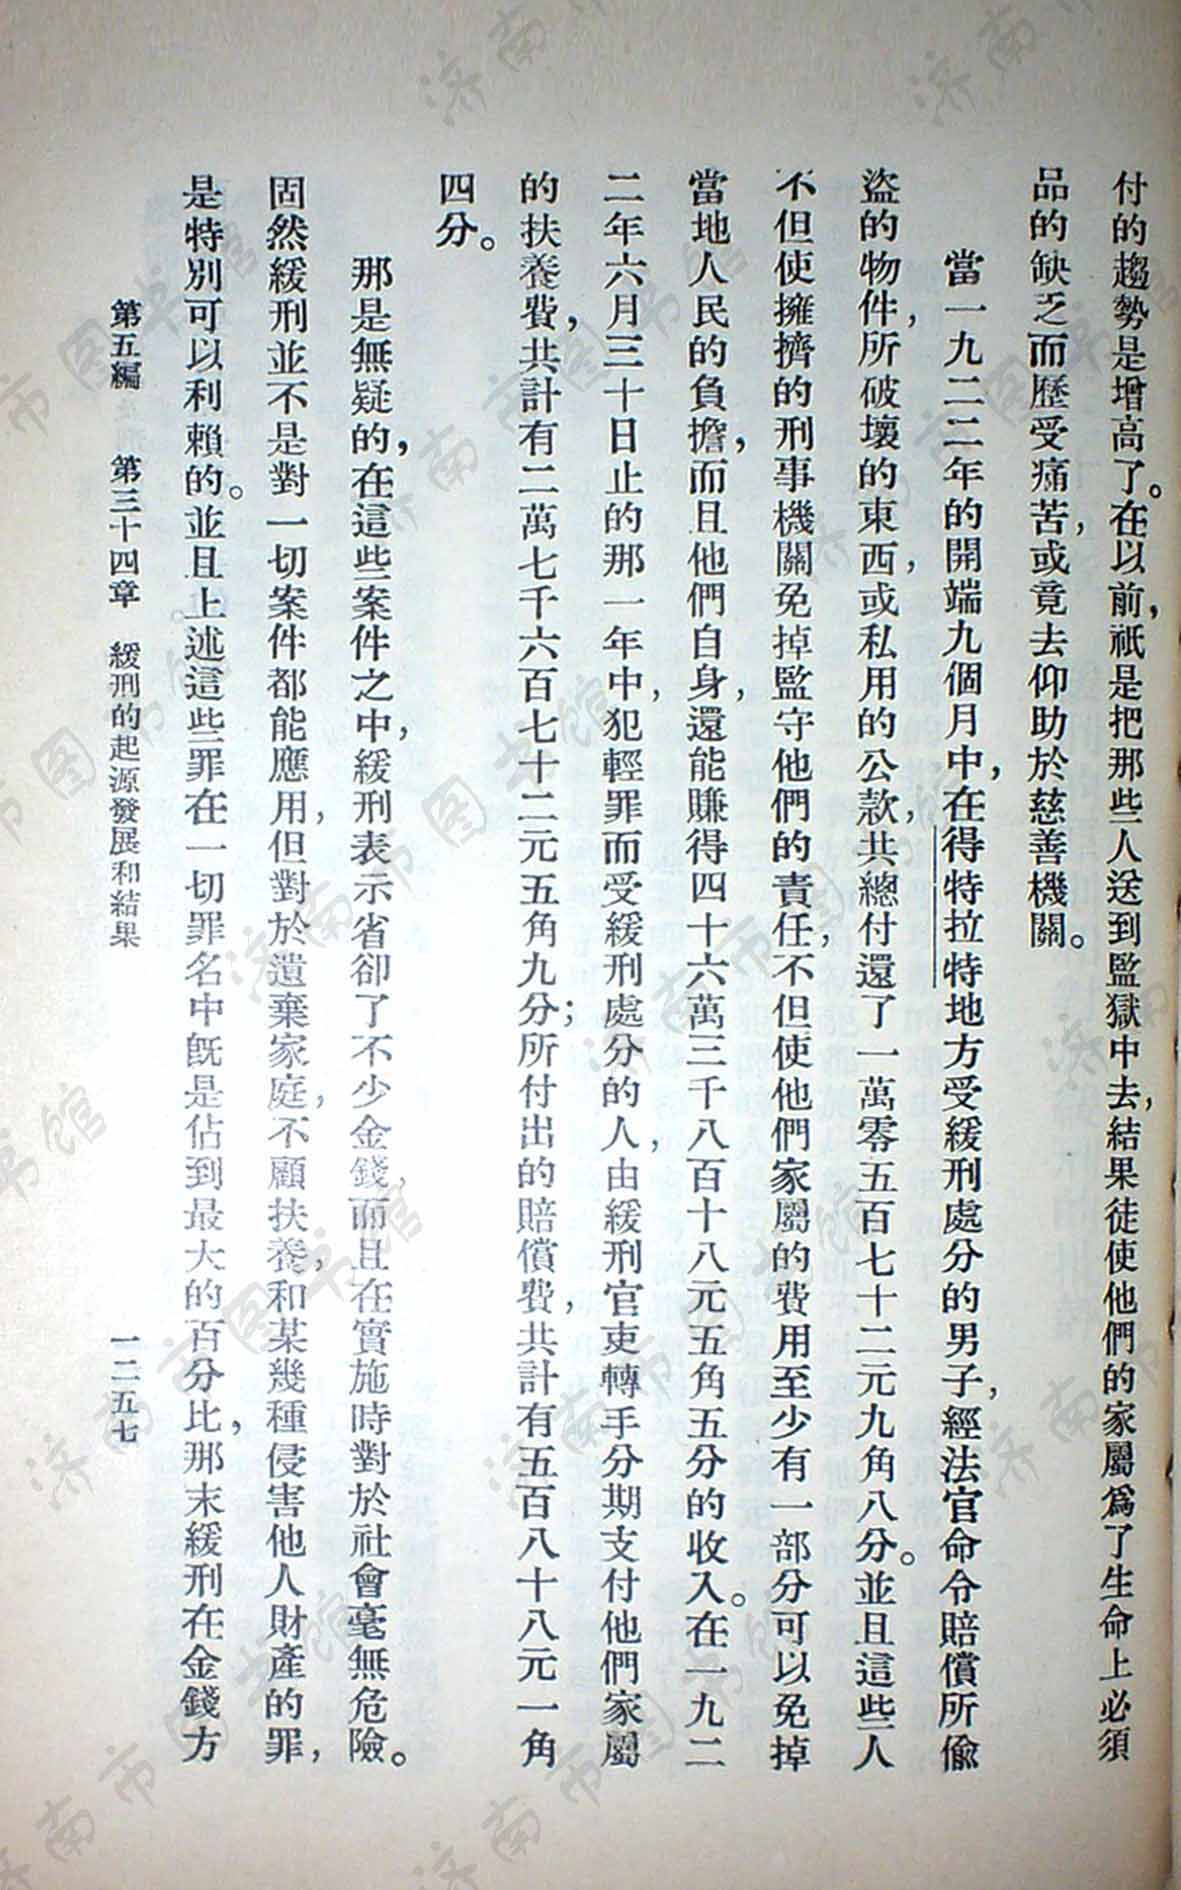 付的趨勢是增高了。在以前，祇是把那些人送到監獄中去，結果徒使他們的家屬爲了生命上必須
品的缺乏而歷受痛苦，或竟去仰助於慈善機關。
當一九二二年的開端九個月中，在得特拉特地方受緩刑處分的男子，經法官命令賠償所偸
盜的物件，所破壞的東西，或私用的公款，共總付還了一萬零五百七十二元九角八分。並且這些人
不但使擁擠的刑事機關免掉監守他們的責任，不但使他們家屬的費用至少有一部分可以免掉
當地人民的負擔，而且他們自身，還能賺得四十六萬三千八百十八元五角五分的收入。在一九二
二年六月三十日止的那一年中，犯輕罪而受緩刑處分的人，由緩刑官吏轉手分期支付他們家屬
的扶養費，共計有二萬七千六百七十二元五角九分；所付出的賠償費，共計有五百八十八元一角
四分。
那是無疑的，在這些案件之中，緩刑表示省卻了不少金錢，而且在實施時對於社會毫無危險。
固然緩刑並不是對一切案件都能應用，但對於遺棄家庭，不顧扶養，和某幾種侵害他人財產的罪，
是特別可以利賴的。並且上述這些罪在一切罪名中旣是佔到最大的百分比，那末緩刑在金錢方
第五編 第三十四章 緩刑的起源發展和結果 一二五七
济南市图书馆